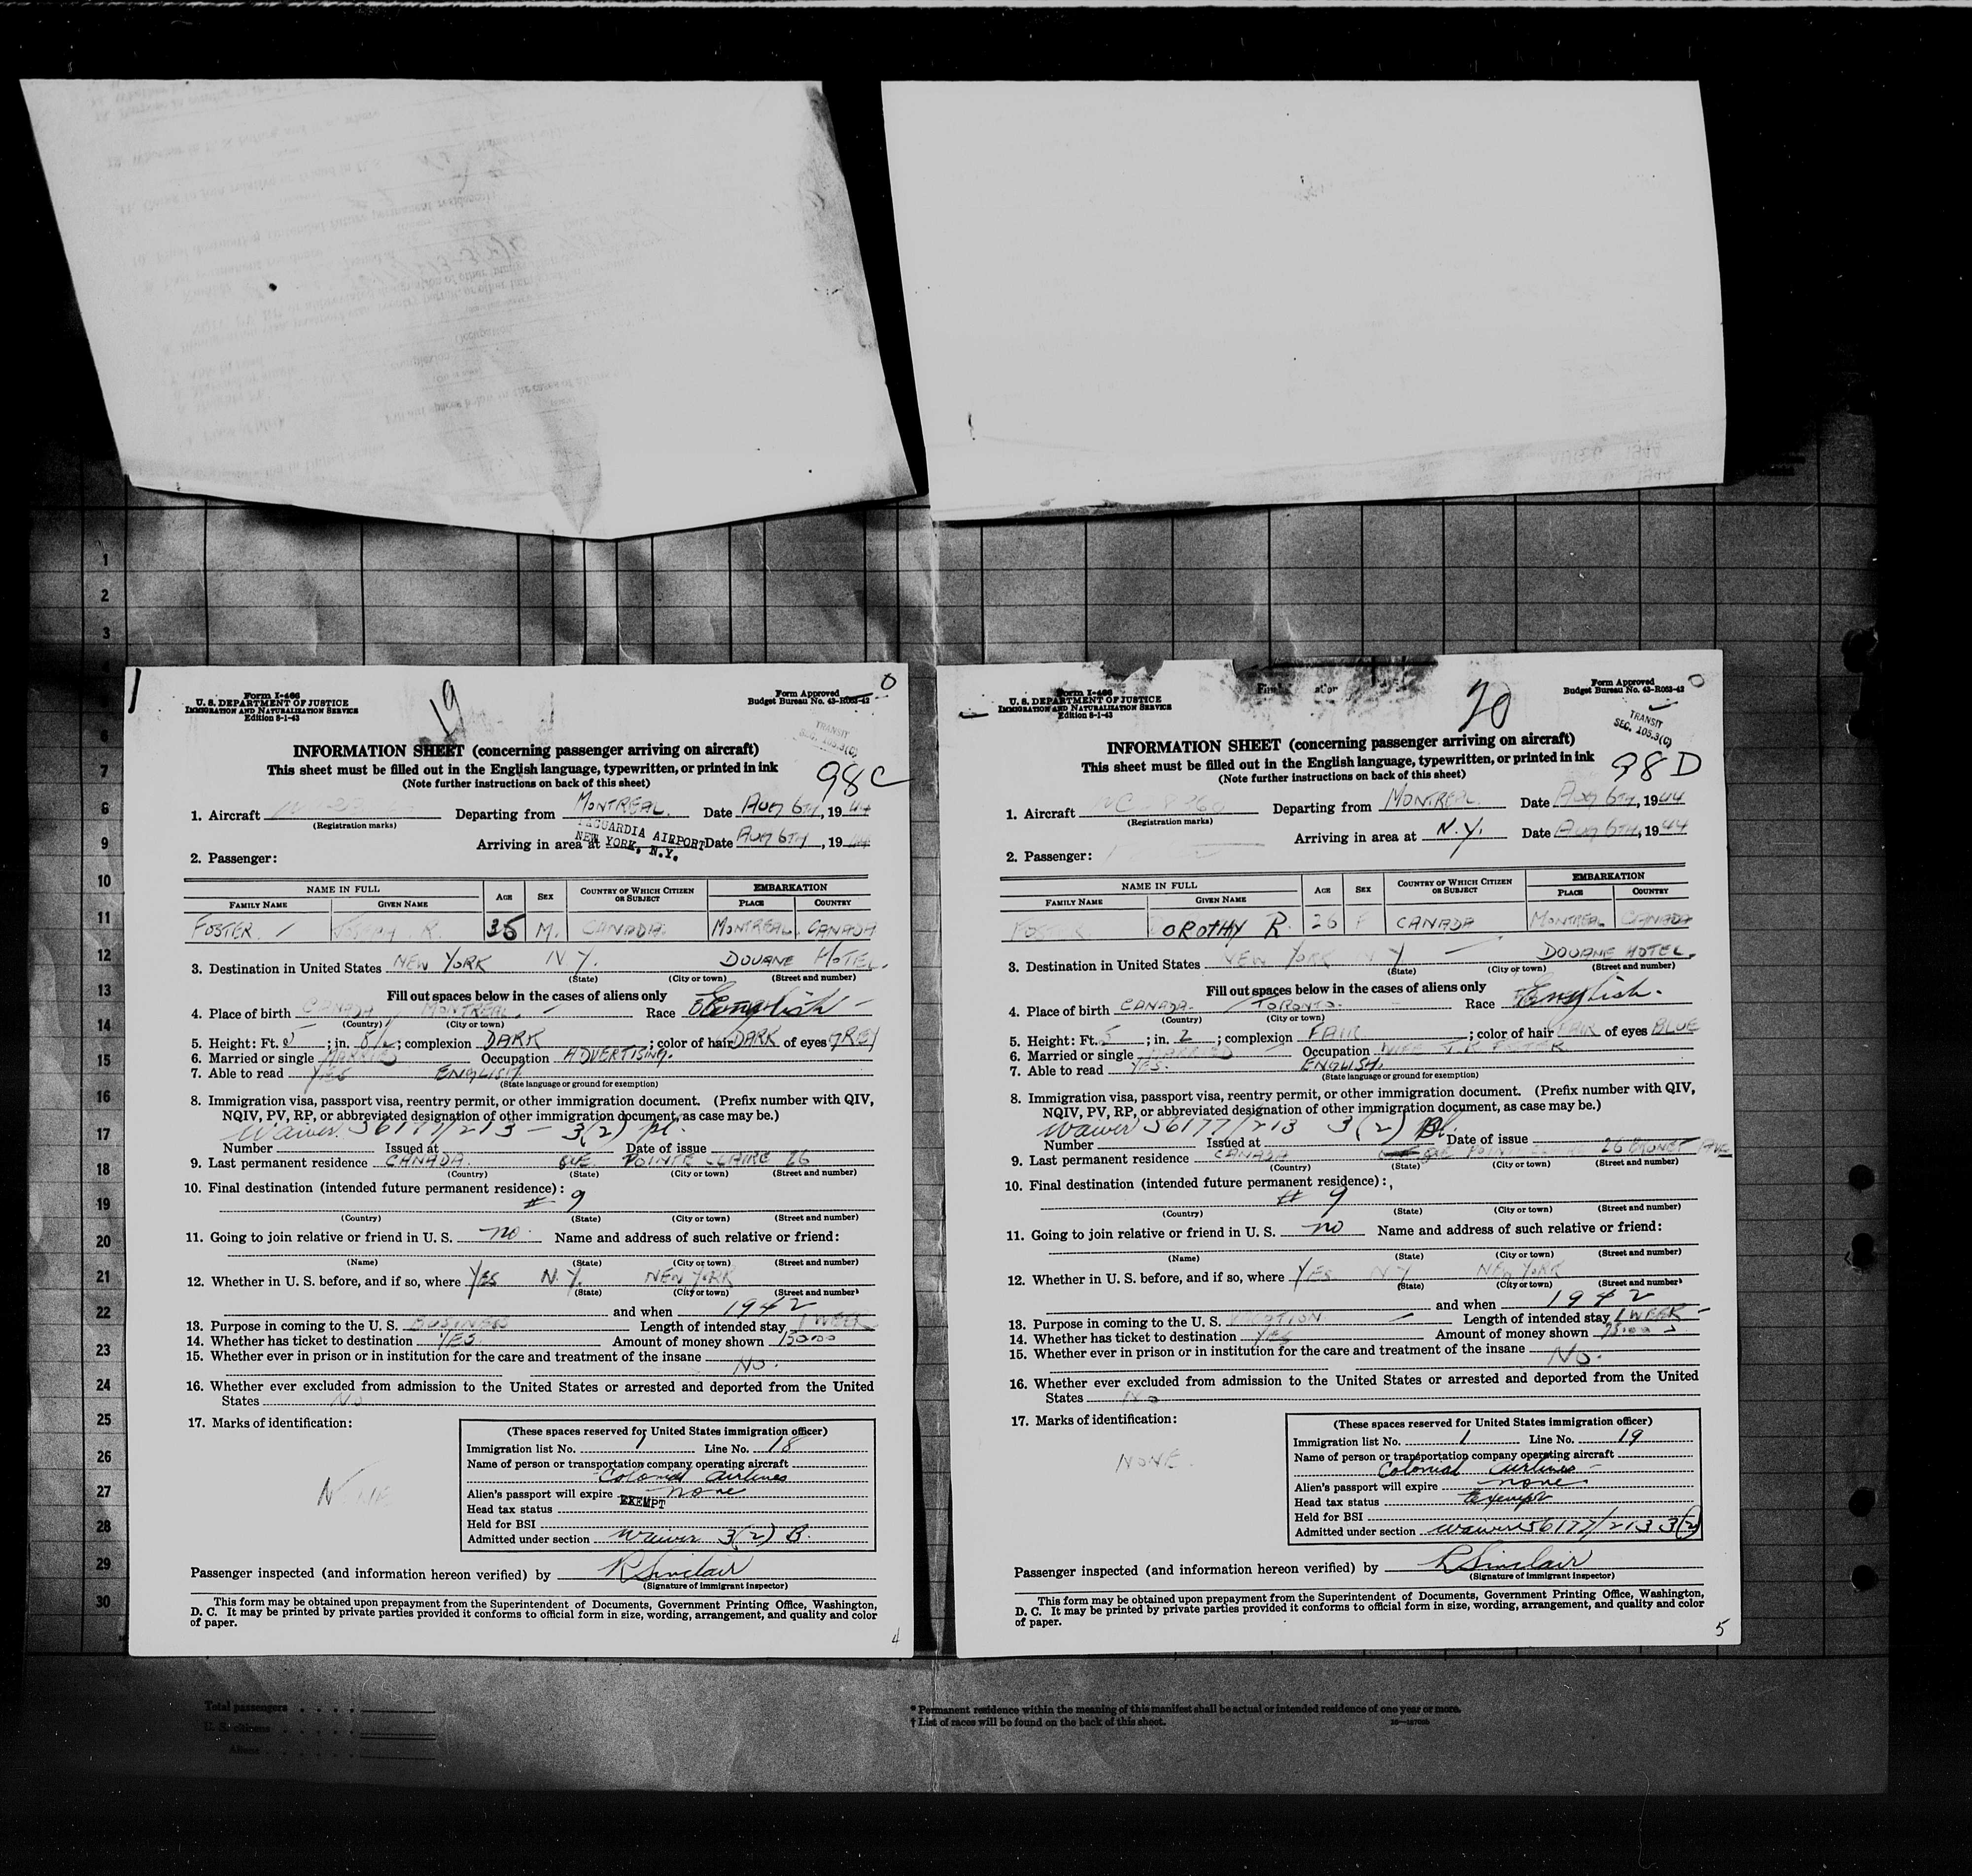 1
2
3
4
6
7
6
9
10
11
12
13
14
15
16
17
18
19
20
21
22
23
24
25
26
27
28
29
30
Form I-466
U. S. DEPARTMENT OF JUSTICE
IMMIGRATION AND NATURALIZATION SERVICE
Edition 8-1-43
19
Form Approved
Budget Bureau No. 43-R063-42
0
TRANSIT
SEC. 105.3(C)
INFORMATION SHEET (concerning passenger arriving on aircraft)
This sheet must be filled out in the English language, typewritten, or printed in ink
(Note further instructions on back of this sheet)
98C
1. Aircraft Departing from MONTREAL. Date AUG 6TH, 1944
(Registration marks)
LAGUARDIA AIRPORT
NEW YORK, N.Y.
Arriving in area at Date AUG 6TH, 1944
2. Passenger:
NAME IN FULL AGE SEX COUNTRY OF WHICH CITIZEN OR SUBJECT EMBARKATION
FAMILY NAME GIVEN NAME PLACE COUNTRY
FOSTER. R. 35 M. CANADA. MONTREAL. CANADA
3. Destination in United States NEW YORK N Y. DOUANE HOTEL.
(State) (City or town) (Street and number)
Fill out spaces below in the cases of aliens only
4. Place of birth CANADA MONTREAL. Race English
(Country) (City or town)
5. Height: Ft. 5; in. ; complexion DARK; color of hair DARK of eyes GREY
6. Married or single MARRIED Occupation ADVERTISING.
7. Able to read YES ENGLISH.
(State language or ground for exemption)
8. Immigration visa, passport visa, reentry permit, or other immigration document. (Prefix number with QIV,
NQIV, PV, RP, or abbreviated designation of other immigration document, as case may be.)
Waiver 56177/213 - 3(2)
Number Issued at Date of issue
9. Last permanent residence CANADA. QUE. POINTE CLAIRE 26
(Country) (State) (City or town) (Street and number)
10. Final destination (intended future permanent residence):
# 9
(Country) (State) (City or town) (Street and number)
11. Going to join relative or friend in U. S. no. Name and address of such relative or friend:
(Name) (State) (City or town) (Street and number)
12. Whether in U. S. before, and if so, where YES N.Y. NEW YORK
(State) (City or town) (Street and number)
and when 1942
13. Purpose in coming to the U. S. BUSINESS Length of intended stay 1 WEEK
14. Whether has ticket to destination YES. Amount of money shown 150.00
15. Whether ever in prison or in institution for the care and treatment of the insane
No.
16. Whether ever excluded from admission to the United States or arrested and deported from the United
States No
17. Marks of identification:
NONE
(These spaces reserved for United States immigration officer)
Immigration list No. 1 Line No. 18
Name of person or transportation company operating aircraft
Colonial Airlines
Alien's passport will expire none
Head tax status EXEMPT
Held for BSI
Admitted under section Waiver 3(2) B.
Passenger inspected (and information hereon verified) by R Sinclair
(Signature of immigrant inspector)
This form may be obtained upon prepayment from the Superintendent of Documents, Government Printing Office, Washington,
D. C. It may be printed by private parties provided it conforms to official form in size, wording, arrangement, and quality and color
of paper.
4
Form I-466
U. S. DEPARTMENT OF JUSTICE
IMMIGRATION AND NATURALIZATION SERVICE
Edition 8-1-43
20
Form Approved
Budget Bureau No. 43-R063-42
0
TRANSIT
SEC. 105.3(C)
INFORMATION SHEET (concerning passenger arriving on aircraft)
This sheet must be filled out in the English language, typewritten, or printed in ink
(Note further instructions on back of this sheet)
98 D
1. Aircraft Departing from MONTREAL. Date AUG 6TH, 1944
(Registration marks)
Arriving in area at N.Y. Date AUG 6TH, 1944
2. Passenger:
NAME IN FULL AGE SEX COUNTRY OF WHICH CITIZEN OR SUBJECT EMBARKATION
FAMILY NAME GIVEN NAME PLACE COUNTRY
FOSTER DOROTHY R. 26 F CANADA MONTREAL CANADA
3. Destination in United States NEW YORK N Y DOUANE HOTEL.
(State) (City or town) (Street and number)
Fill out spaces below in the cases of aliens only
4. Place of birth CANADA. TORONTO. Race English.
(Country) (City or town)
5. Height: Ft. 5; in. 2; complexion FAIR; color of hair FAIR of eyes BLUE
6. Married or single MARRIED Occupation WIFE FOSTER
7. Able to read YES. ENGLISH.
(State language or ground for exemption)
8. Immigration visa, passport visa, reentry permit, or other immigration document. (Prefix number with QIV,
NQIV, PV, RP, or abbreviated designation of other immigration document, as case may be.)
Waiver 56177/213 3(2)
Number Issued at Date of issue
9. Last permanent residence CANADA QUE POINTE CLAIRE 26 AVE
(Country) (State) (City or town) (Street and number)
10. Final destination (intended future permanent residence):
# 9
(Country) (State) (City or town) (Street and number)
11. Going to join relative or friend in U. S. no Name and address of such relative or friend:
(Name) (State) (City or town) (Street and number)
12. Whether in U. S. before, and if so, where YES N Y NEW YORK
(State) (City or town) (Street and number)
and when 1942
13. Purpose in coming to the U. S. VACATION. Length of intended stay 1 WEEK
14. Whether has ticket to destination YES Amount of money shown 75.00
15. Whether ever in prison or in institution for the care and treatment of the insane
No.
16. Whether ever excluded from admission to the United States or arrested and deported from the United
States No
17. Marks of identification:
NONE.
(These spaces reserved for United States immigration officer)
Immigration list No. 1 Line No. 19
Name of person or transportation company operating aircraft
Colonial Airlines
Alien's passport will expire none
Head tax status Exempt
Held for BSI
Admitted under section Waiver 56177/213 3(2)
Passenger inspected (and information hereon verified) by R Sinclair
(Signature of immigrant inspector)
This form may be obtained upon prepayment from the Superintendent of Documents, Government Printing Office, Washington,
D. C. It may be printed by private parties provided it conforms to official form in size, wording, arrangement, and quality and color
of paper.
5
Total passengers
U. S. citizens
Aliens
* Permanent residence within the meaning of this manifest shall be actual or intended residence of one year or more.
† List of races will be found on the back of this sheet.